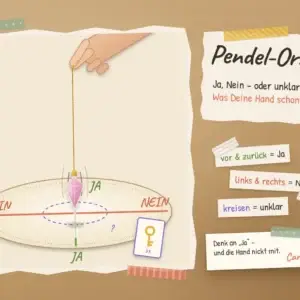 Pendel-Or
Ja, Nein – oder unklar
Was Deine Hand schon
vor & zurück = Ja
links & rechts = N
kreisen = unklar
Denk an „Ja" –
und die Hand nickt mit.
Car
JA
EIN
NEIN
?
JA